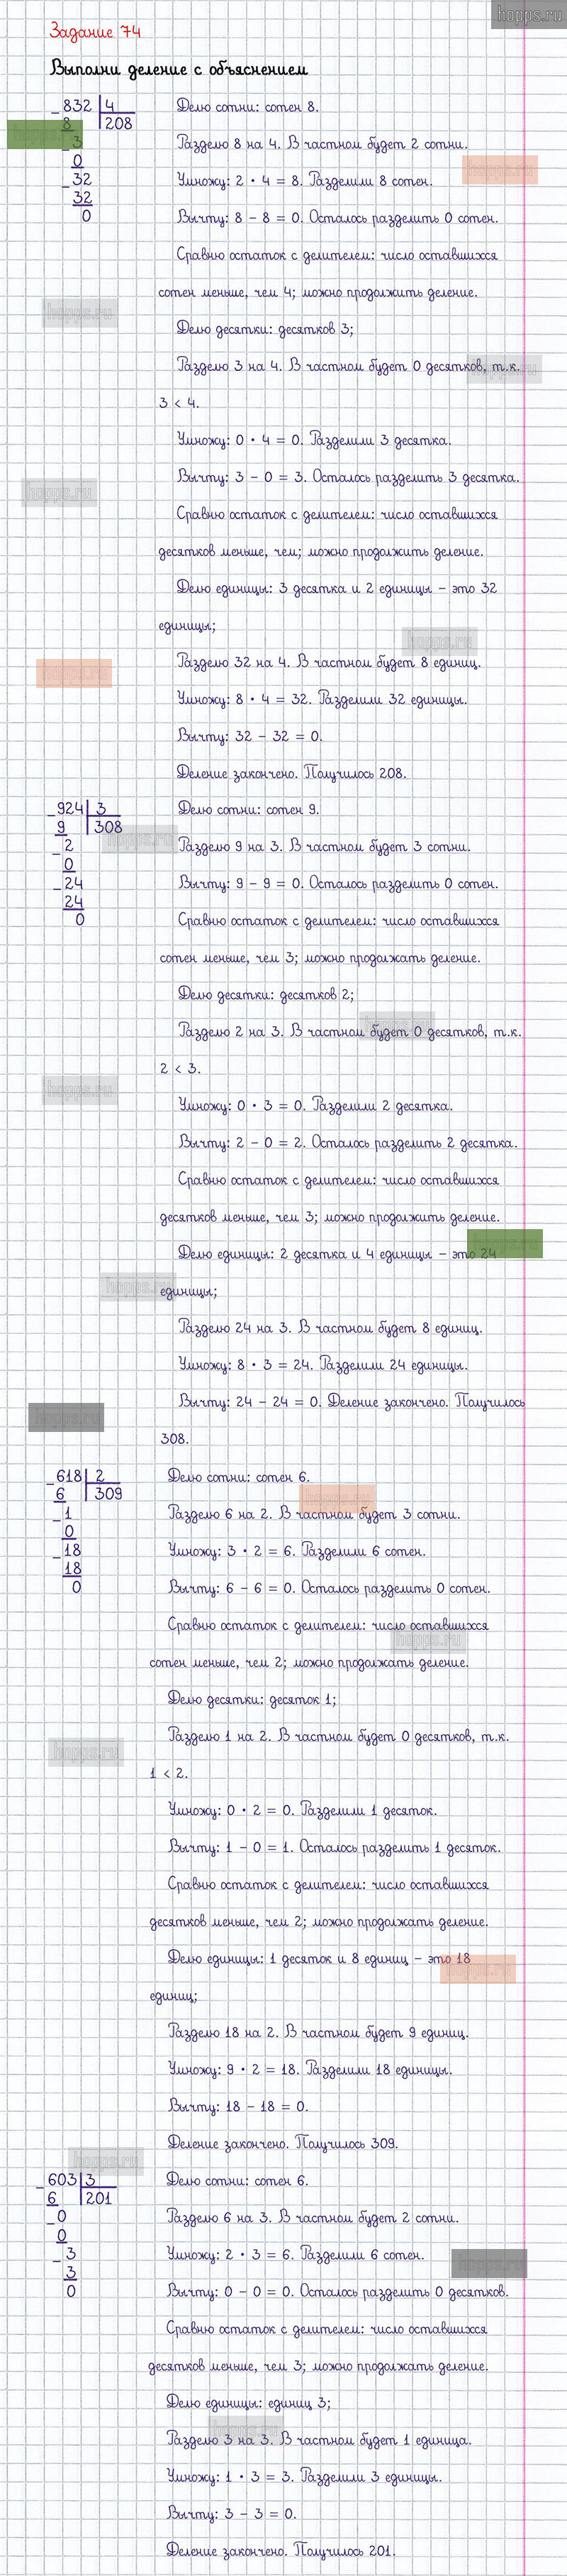 hopps.ru
Задание 74
Выполни деление с объяснением
832 4
8 208
3
0
32
32
0
Делю сотни: сотен 8.
Разделю 8 на 4. В частном будет 2 сотни.
Умножу: 2 • 4 = 8. Разделили 8 сотен.
Вычту: 8 – 8 = 0. Осталось разделить 0 сотен.
Сравню остаток с делителем: число оставшихся
сотен меньше, чем 4; можно продолжить деление.
Делю десятки: десятков 3;
Разделю 3 на 4. В частном будет 0 десятков, т.к.
3 < 4.
Умножу: 0 • 4 = 0. Разделили 3 десятка.
Вычту: 3 – 0 = 3. Осталось разделить 3 десятка.
Сравню остаток с делителем: число оставшихся
десятков меньше, чем; можно продолжить деление.
Делю единицы: 3 десятка и 2 единицы – это 32
единицы;
Разделю 32 на 4. В частном будет 8 единиц.
Умножу: 8 • 4 = 32. Разделили 32 единицы.
Вычту: 32 – 32 = 0.
Деление закончено. Получилось 208.
924 3
9 308
2
0
24
24
0
Делю сотни: сотен 9.
Разделю 9 на 3. В частном будет 3 сотни.
Вычту: 9 – 9 = 0. Осталось разделить 0 сотен.
Сравню остаток с делителем: число оставшихся
сотен меньше, чем 3; можно продолжать деление.
Делю десятки: десятков 2;
Разделю 2 на 3. В частном будет 0 десятков, т.к.
2 < 3.
Умножу: 0 • 3 = 0. Разделили 2 десятка.
Вычту: 2 – 0 = 2. Осталось разделить 2 десятка.
Сравню остаток с делителем: число оставшихся
десятков меньше, чем 3; можно продолжить деление.
Делю единицы: 2 десятка и 4 единицы – это 24
единицы;
Разделю 24 на 3. В частном будет 8 единиц.
Умножу: 8 • 3 = 24. Разделили 24 единицы.
Вычту: 24 – 24 = 0. Деление закончено. Получилось
308.
618 2
6 309
1
0
18
18
0
Делю сотни: сотен 6.
Разделю 6 на 2. В частном будет 3 сотни.
Умножу: 3 • 2 = 6. Разделили 6 сотен.
Вычту: 6 – 6 = 0. Осталось разделить 0 сотен.
Сравню остаток с делителем: число оставшихся
сотен меньше, чем 2; можно продолжать деление.
Делю десятки: десяток 1;
Разделю 1 на 2. В частном будет 0 десятков, т.к.
1 < 2.
Умножу: 0 • 2 = 0. Разделили 1 десяток.
Вычту: 1 – 0 = 1. Осталось разделить 1 десяток.
Сравню остаток с делителем: число оставшихся
десятков меньше, чем 2; можно продолжать деление.
Делю единицы: 1 десяток и 8 единиц – это 18
единиц;
Разделю 18 на 2. В частном будет 9 единиц.
Умножу: 9 • 2 = 18. Разделили 18 единицы.
Вычту: 18 – 18 = 0.
Деление закончено. Получилось 309.
603 3
6 201
0
0
3
3
0
Делю сотни: сотен 6.
Разделю 6 на 3. В частном будет 2 сотни.
Умножу: 2 • 3 = 6. Разделили 6 сотен.
Вычту: 0 – 0 = 0. Осталось разделить 0 десятков.
Сравню остаток с делителем: число оставшихся
десятков меньше, чем 3; можно продолжать деление.
Делю единицы: единиц 3;
Разделю 3 на 3. В частном будет 1 единица.
Умножу: 1 • 3 = 3. Разделили 3 единицы.
Вычту: 3 – 3 = 0.
Деление закончено. Получилось 201.